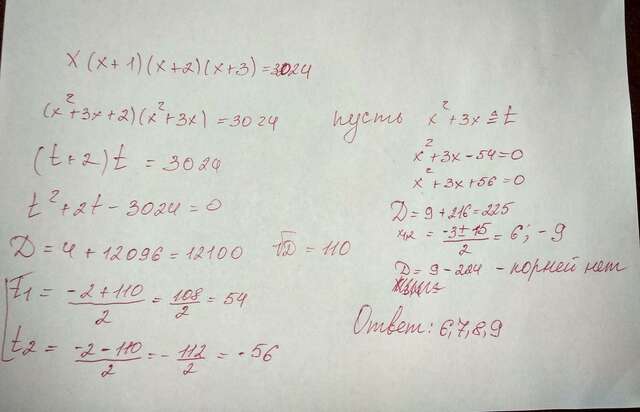 x(x+1)(x+2)(x+3)=3024
(x²+3x+2)(x²+3x)=3024
пусть x²+3x=t
(t+2)t=3024
t²+2t-3024=0
D=4+12096=12100 √D=110
t₁ = (-2+110)/2 = 108/2 = 54
t₂ = (-2-110)/2 = -112/2 = -56
x²+3x-54=0
x²+3x+56=0
D=9+216=225
x₁,₂ = (-3±15)/2 = 6; -9
D=9-224 - корней нет
Ответ: 6,7,8,9